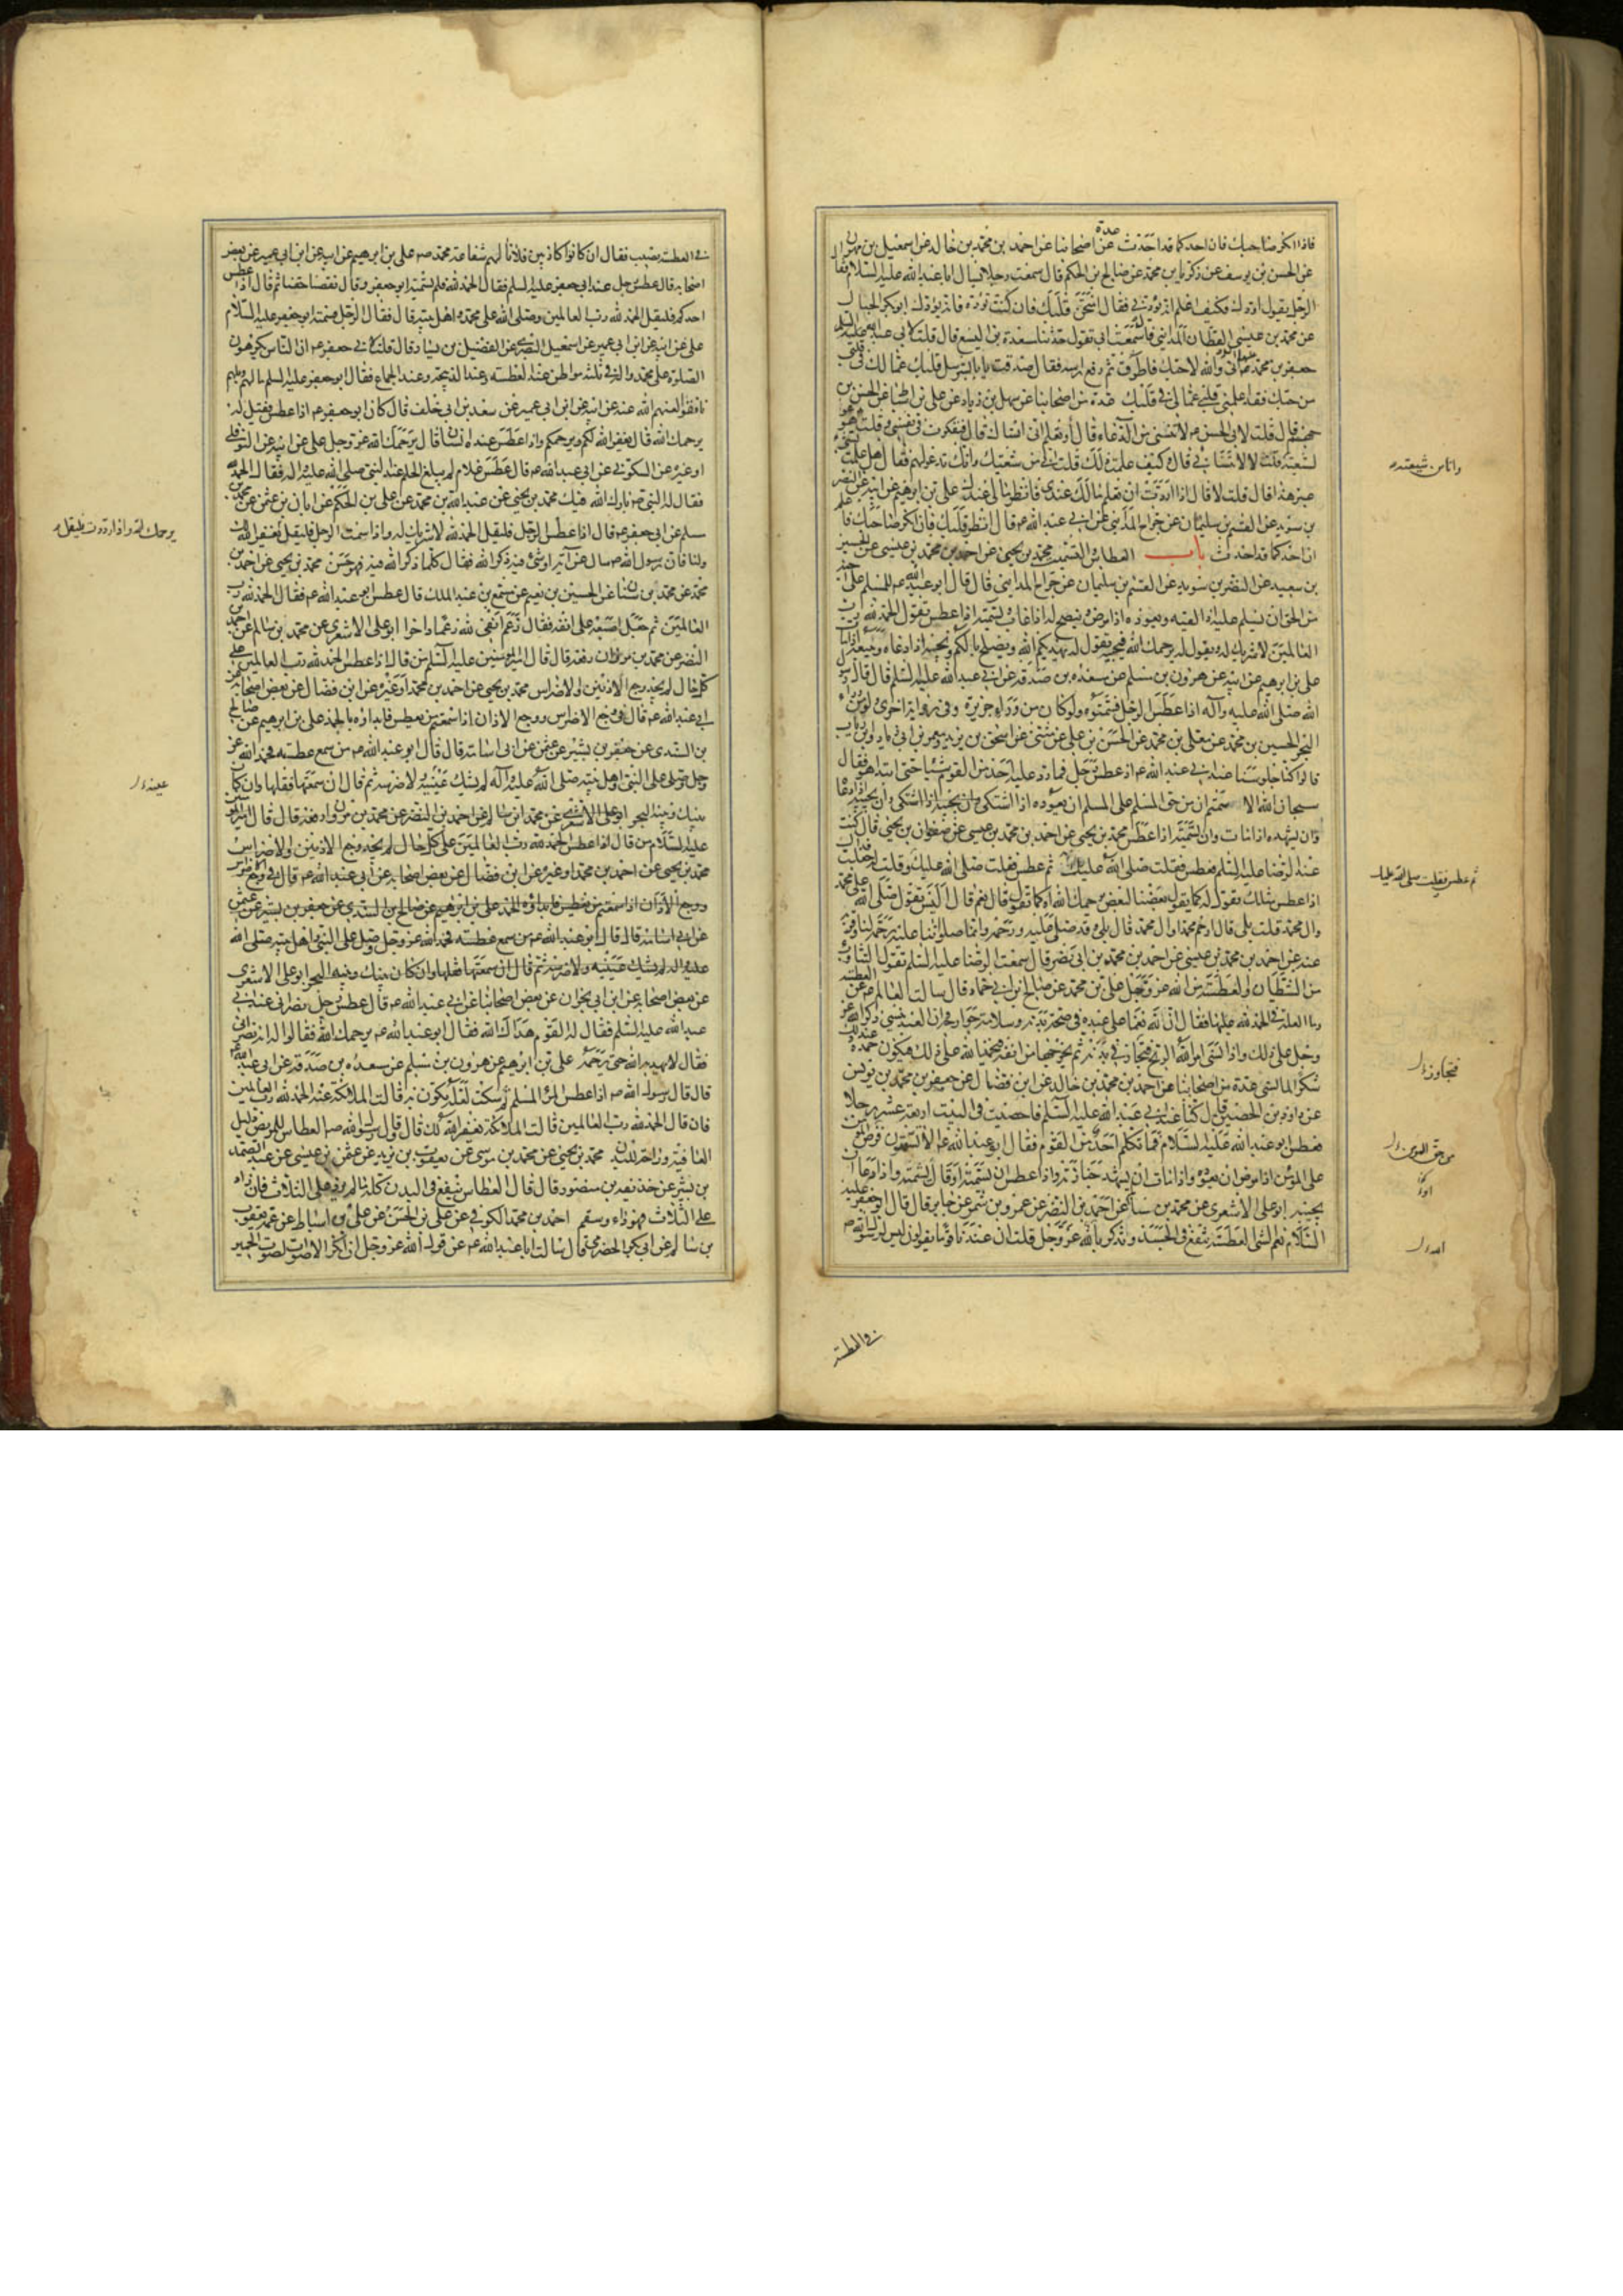 فاذا انكر صاحبك فان احدكما قد احدث عدة من اصحابنا عن احمد بن محمد بن خالد عن اسمعيل بن مهران
عن الحسن بن يوسف عن زكريا بن محمد عن صالح بن الحكم قال سمعت رجلا يسال ابا عبد الله عليه السلام فقال
الرجل يقول اودك فكيف اعلم انه يودني فقال امتحن قلبك فان كنت توده فانه يودك ابو بكر الحبال
عن محمد بن عيسى القطان المدايني قال سمعت ابي يقول حدثنا مسعدة بن اليسع قال قلت لابي عبد الله
جعفر بن محمد عليهما السلام اني والله لاحبك فاطرق ثم رفع راسه فقال صدقت يا با بشر سل قلبك عما لك في قلبي
من حبك فقد اعلمني قلبي عما لي في قلبك عدة من اصحابنا عن سهل بن زياد عن علي بن اسباط عن الحسن بن
جهم قال قلت لابي الحسن ع لا تنسني من الدعاء قال أو تعلم اني انساك قال فتفكرت في نفسي وقلت هو يدعو
لشيعته قلت لا لا تنساني قال كيف علمت ذلك قلت اني من شيعتك وانك تدعو لهم فقال هل علمت بشيء
غير هذا قال قلت لا قال اذا اردت ان تعلم ما لك عندي فانظر ما لي عندك علي بن ابرهيم عن ابيه عن النضر
بن سويد عن القسم بن سليمان عن جراح المدايني عن ابي عبد الله ع قال انظر قلبك فان انكر صاحبك فاعلم
ان احدكما قد احدث باب العطاس والتسميت محمد بن يحيى عن احمد بن محمد بن عيسى عن الحسين
بن سعيد عن النضر بن سويد عن القسم بن سليمان عن جراح المدايني قال قال ابو عبد الله ع للمسلم على اخيه
من الحق ان يسلم عليه اذا لقيه ويعوده اذا مرض وينصح له اذا غاب ويسمته اذا عطس يقول الحمد لله رب
العالمين لا شريك له ويقول له يرحمك الله فيجيبه يقول له يهديكم الله ويصلح بالكم ويجيبه اذا دعاه ويتبعه اذا مات
علي بن ابرهيم عن ابيه عن هرون بن مسلم عن مسعدة بن صدقة عن ابي عبد الله عليه السلم قال قال رسول
الله صلى الله عليه وآله اذا عطس الرجل فسمتوه ولو كان من وراء جزيرة وفي رواية اخرى ولو من وراء
البحر الحسين بن محمد عن معلى بن محمد عن الحسن بن علي عن مثنى عن اسحق بن يزيد ومعمر بن ابي زياد وابن رياب
قالوا كنا جلوسا عند ابي عبد الله ع اذ عطس رجل فما رد عليه احد من القوم شيئا حتى ابتدا هو فقال
سبحان الله الا سمتم ان من حق المسلم على المسلم ان يعوده اذا اشتكى وان يجيبه اذا دعاه
وان يشهده اذا مات وان يسمته اذا عطس محمد بن يحيى عن احمد بن محمد بن عيسى عن صفوان بن يحيى قال كنت
عند الرضا عليه السلم فعطس فقلت صلى الله عليك ثم عطس فقلت صلى الله عليك وقلت له جعلت فداك
اذا عطس مثلك نقول له كما يقول بعضنا لبعض يرحمك الله او كما تقول قال نعم قال اليس تقول صلى الله على محمد
وال محمد قلت بلى قال ارحم محمدا وال محمد قال بلى وقد صلى عليه ورحمه وانما صلواتنا عليه رحمة لنا وقربة
عنه عن احمد بن محمد بن عيسى عن احمد بن محمد بن ابي نصر قال سمعت الرضا عليه السلم يقول التثاوب
من الشيطان والعطسة من الله عز وجل علي بن محمد عن صالح بن ابي حماد قال سالت العالم ع عن العطسة
وما العلة في الحمد لله عليها فقال ان لله نعما على عبده في صحة بدنه وسلامة جوارحه وان العبد ينسى ذكر الله عز
وجل على ذلك واذا نسي امر الله الريح فتجاز في بدنه ثم يخرجها من انفه فيحمد الله على ذلك فيكون حمده عند ذلك
شكرا لما نسي عدة من اصحابنا عن احمد بن محمد بن خالد عن ابن فضال عن جعفر بن محمد بن يونس
عن داود بن الحصين قال كنا عند ابي عبد الله عليه السلم فاحصيت في البيت اربعة عشر رجلا
فعطس ابو عبد الله عليه السلام فما تكلم احد من القوم فقال ابو عبد الله ع الا تسمتون فرض المؤمن
على المؤمن اذا مرض ان يعوده واذا مات ان يشهد جنازته واذا عطس ان يسمته او قال يشمته واذا دعاه ان
يجيبه ابو علي الاشعري عن محمد بن سالم عن احمد بن النضر عن عمرو بن شمر عن جابر قال قال ابو جعفر عليه
السلام نعم الشيء العطسة تنفع في الجسد وتذكر بالله عز وجل قلت ان عندنا قوما يقولون ليس لرسول الله ص
في العطسة
واناس شيعته
ثم عطس فقلت صلى الله عليك
فتجاوز
من حق المومن
الله
في العطسة نصيب فقال ان كانوا كاذبين فلا نالهم شفاعة محمد ص علي بن ابرهيم عن ابيه عن ابن ابي عمير عن بعض
اصحابه قال عطس رجل عند ابي جعفر عليه السلم فقال الحمد لله فلم يسمته ابو جعفر وقال نقصنا حقنا ثم قال اذا عطس
احدكم فليقل الحمد لله رب العالمين وصلى الله على محمد واهل بيته قال فقال الرجل فسمته ابو جعفر عليه السلام
علي عن ابيه عن ابن ابي عمير عن اسمعيل البصري عن الفضيل بن يسار قال قلت لابي جعفر ع ان الناس يكرهون
الصلوة على محمد واله في ثلثة مواطن عند العطسة وعند الذبيحة وعند الجماع فقال ابو جعفر عليه السلم ما لهم ويلهم
نافقوا لعنهم الله عنه عن ابيه عن ابن ابي عمير عن سعد بن ابي خلف قال كان ابو جعفر ع اذا عطس فقيل له
يرحمك الله قال يغفر الله لكم ويرحمكم واذا عطس عنده انسان قال يرحمك الله عز وجل علي عن ابيه عن النوفلي
او غيره عن السكوني عن ابي عبد الله ع قال عطس غلام لم يبلغ الحلم عند النبي صلى الله عليه واله فقال الحمد لله
فقال له النبي ص بارك الله فيك محمد بن يحيى عن عبد الله بن محمد عن علي بن الحكم عن ابان بن عثمن عن محمد بن
مسلم عن ابي جعفر ع قال اذا عطس الرجل فليقل الحمد لله لا شريك له واذا سمت الرجل فليقل يغفر الله لك
ولنا فان رسول الله ص سئل عن آية او شيء فيه ذكر الله فقال كلما ذكر الله فيه فهو حسن محمد بن يحيى عن احمد بن
محمد عن محمد بن سنان عن الحسين بن نعيم عن مسمع بن عبد الملك قال عطس ابو عبد الله ع فقال الحمد لله رب
العالمين ثم جعل اصبعه على انفه فقال رغم انفي لله رغما داخرا ابو علي الاشعري عن محمد بن سالم عن احمد بن
النضر عن محمد بن مروان رفعه قال قال امير المؤمنين عليه السلم من قال اذا عطس الحمد لله رب العالمين على
كل حال لم يجد وجع الاذنين والاضراس محمد بن يحيى عن احمد بن محمد او غيره عن ابن فضال عن بعض اصحابه عن
ابي عبد الله ع قال في وجع الاضراس ووجع الاذان اذا سمعتم من يعطس فابدءوه بالحمد علي بن ابرهيم عن صالح
بن السندي عن جعفر بن بشير عن عثمن عن ابي اسامة قال قال ابو عبد الله ع من سمع عطسة فحمد الله عز
وجل وصلى على النبي واهل بيته صلى الله عليه وآله لم يشتك عينيه ولا ضرسه ثم قال ان سمعتها فقلها وان كان
بينك وبينه البحر ابو علي الاشعري عن محمد ابن سالم عن احمد بن النضر عن محمد بن مروان رفعه قال قال امير المؤمنين
عليه السلام من قال اذا عطس الحمد لله رب العالمين على كل حال لم يجد وجع الاذنين والاضراس
محمد بن يحيى عن احمد بن محمد او غيره عن ابن فضال عن بعض اصحابه عن ابي عبد الله ع قال في وجع الاضراس
ووجع الآذان اذا سمعتم من يعطس فابدءوه بالحمد علي بن ابرهيم عن صالح بن السندي عن جعفر بن بشير عن عثمن
عن ابي اسامة قال قال ابو عبد الله ع من سمع عطسة فحمد الله عز وجل وصلى على النبي واهل بيته صلى الله
عليه واله لم يشتك عينيه ولا ضرسه ثم قال ان سمعتها فقلها وان كان بينك وبينه البحر ابو علي الاشعري
عن بعض اصحابه عن ابن ابي نجران عن بعض اصحابنا عن ابي عبد الله ع قال عطس رجل نصراني عند ابي
عبد الله عليه السلم فقال له القوم هداك الله فقال ابو عبد الله ع يرحمك الله فقالوا له انه نصراني
فقال لا يهديه الله حتى يرحمه علي بن ابرهيم عن هرون بن مسلم عن مسعدة بن صدقة عن ابي عبد الله ع
قال قال رسول الله ص اذا عطس المرء المسلم ثم سكت لعلة تكون به قالت الملائكة عنه الحمد لله رب العالمين
فان قال الحمد لله رب العالمين قالت الملائكة يغفر الله لك قال وقال رسول الله ص العطاس للمريض دليل
العافية وراحة للبدن محمد بن يحيى عن محمد بن موسى عن يعقوب بن يزيد عن عثمن بن عيسى عن عبد الصمد
بن بشير عن حذيفة بن منصور قال قال العطاس ينفع في البدن كله ما لم يزد على الثلاث فان زاد
على الثلاث فهو داء وسقم احمد بن محمد الكوفي عن علي بن الحسن عن علي بن اسباط عن عمه يعقوب
بن سالم عن ابي بكر الحضرمي قال سالت ابا عبد الله ع عن قول الله عز وجل ان انكر الاصوات لصوت الحمير
يرحمك الله واذا رددت فليقل
عينه